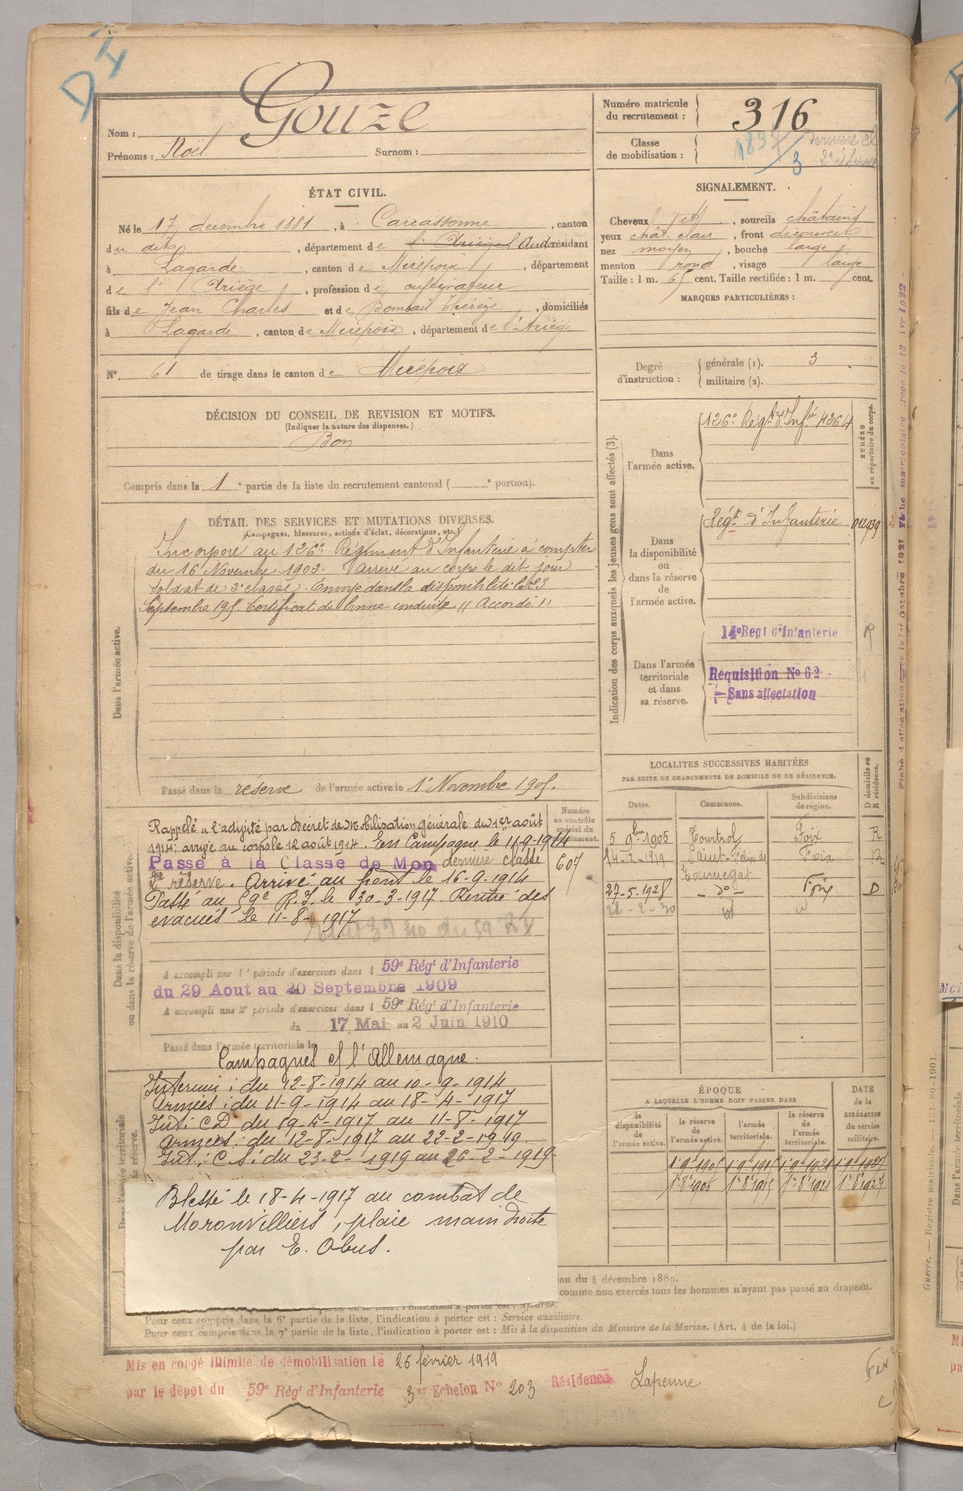 Nom : Gouze
Prénoms : Noël Surnom :
Numéro matricule du recrutement : 316
Classe de mobilisation : 1897/3 dernière cl
2e réserve
ÉTAT CIVIL.
Né le 17 décembre 1881, à Carcassonne, canton
du dit, département de l'Ariège Aude résidant
à Lagarde, canton de Mirepoix, département
de l'Ariège, profession de cultivateur
fils de Jean Charles et de Bombail Thérèse, domiciliés
à Lagarde, canton de Mirepoix, département de l'Ariège
N° 61 de tirage dans le canton de Mirepoix
SIGNALEMENT.
Cheveux , sourcils châtains
yeux chât. clair, front découvert
nez moyen, bouche large
menton rond, visage large
Taille : 1 m. 65 cent. Taille rectifiée : 1 m. cent.
MARQUES PARTICULIÈRES :
Degré d'instruction : générale (1). 3
militaire (2).
DÉCISION DU CONSEIL DE REVISION ET MOTIFS.
(Indiquer la nature des dispenses.)
Bon
Compris dans la 1e partie de la liste du recrutement cantonal ( e portion).
DÉTAIL DES SERVICES ET MUTATIONS DIVERSES.
(Campagnes, blessures, actions d'éclat, décorations, etc.)
Dans l'armée active.
Incorporé au 126e Régiment d'Infanterie à compter
du 16 Novembre 1902. Arrivé au corps le dit jour
soldat de 2e classe. Envoyé dans la disponibilité le 23
Septembre 1905. Certificat de bonne conduite "Accordé"
Passé dans la réserve de l'armée active le 1er Novembre 1905.
Indication des corps auxquels les jeunes gens sont affectés (3).
NUMÉRO au répertoire du corps.
Dans l'armée active.
126e Régt d'Infie
Dans la disponibilité ou dans la réserve de l'armée active.
Régt d'Infanterie
Dans l'armée territoriale et dans sa réserve.
14e Regt d'Infanterie
Requisition No 62
Sans affectation
Dans la disponibilité ou dans la réserve de l'armée active.
Numéro au contrôle spécial du recrutement.
607
Rappelé à l'activité par Décret de Mobilisation générale du 1er août
1914 : arrivé au corps le 12 août 1914. En Campagne le 11-9-1914
Passé à la Classe de Mon dernière classe
2e réserve. Arrivé au front le 16-9-1914
Passé au 59e R.I. le 30-3-1917. Rentré des
évacués le 11-8-1917
A accompli une 1e période d'exercices dans l 59e Régt d'Infanterie
du 29 Aout au 20 Septembre 1909
A accompli une 2e période d'exercices dans l 59e Régt d'Infanterie
du 17 Mai au 2 Juin 1910
Passé dans l'armée territoriale le
Campagnes c/ l'Allemagne.
Intérieur : du 12-8-1914 au 10-9-1914
Armées : du 11-9-1914 au 18-4-1917
Int : CD. du 19-4-1917 au 11-8-1917
Armées : du 12-8-1917 au 22-2-1919.
Int : C S : du 23-2-1919 au 26-2-1919
Blessé le 18-4-1917 au combat de
Moronvilliers, plaie main droite
par E. Obus.
LOCALITÉS SUCCESSIVES HABITÉES
PAR SUITE DE CHANGEMENTS DE DOMICILE OU DE RÉSIDENCE.
Dates. Communes. Subdivisions de région. D domicile ou R résidence.
5 9bre 1905 Tourtrol Foix R
14-2-1919 Foix R
27-5-1928 do Foix D
ÉPOQUE
A LAQUELLE L'HOMME DOIT PASSER DANS
la disponibilité de l'armée active.
la réserve de l'armée active.
l'armée territoriale.
la réserve de l'armée territoriale.
DATE de la LIBÉRATION du service militaire.
du 4 décembre 1889.
comme non exercés tous les hommes n'ayant pas passé au drapeau.
Pour ceux compris dans la 6e partie de la liste, l'indication à porter est : Service auxiliaire.
Pour ceux compris dans la 7e partie de la liste, l'indication à porter est : Mis à la disposition du Ministre de la Marine. (Art. 4 de la loi.)
Mis en congé illimité de démobilisation le 26 février 1919
par le dépot du 59e Rég' d'Infanterie 3er Echelon No 203 Résidence Lapenne